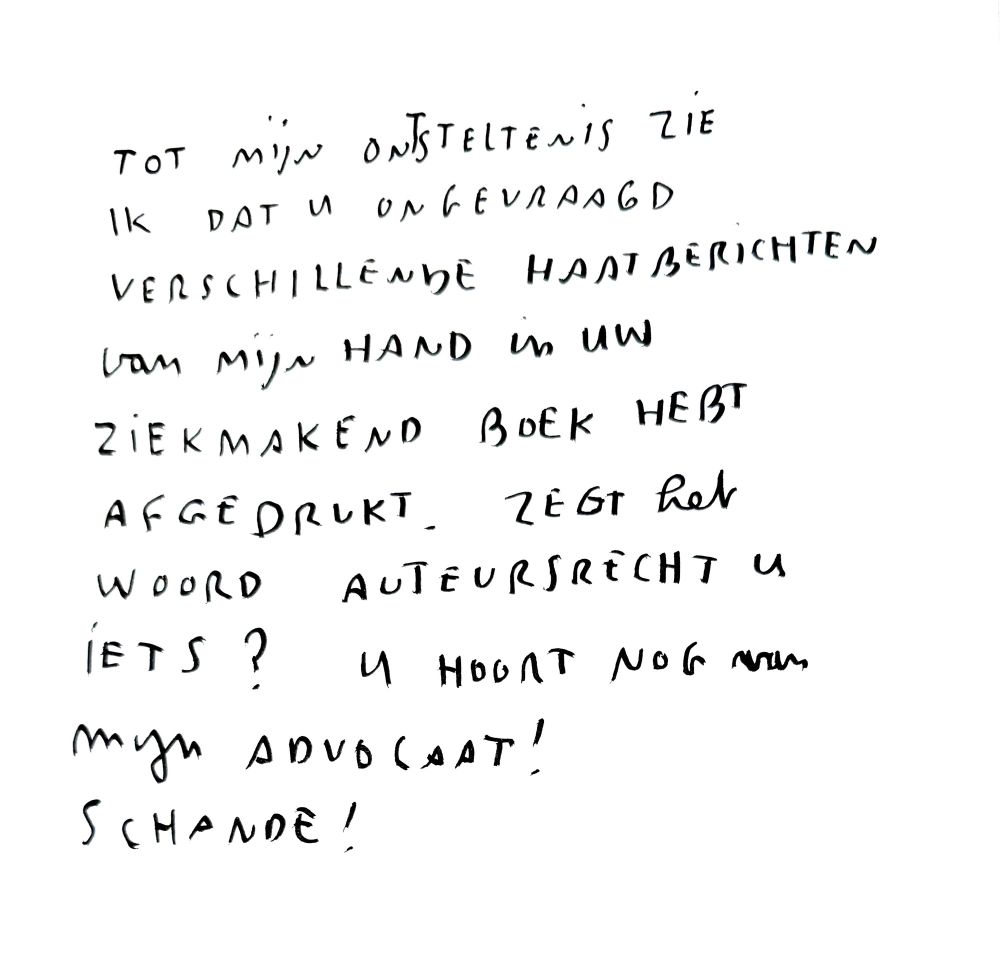 TOT MIJN ONTSTELTENIS ZIE
IK DAT U ONGEVRAAGD
VERSCHILLENDE HAATBERICHTEN
van MIJN HAND in UW
ZIEKMAKEND BOEK HEBT
AFGEDRUKT. ZEGT het
WOORD AUTEURSRECHT U
IETS? U HOORT NOG van
mijn ADVOCAAT!
SCHANDE!